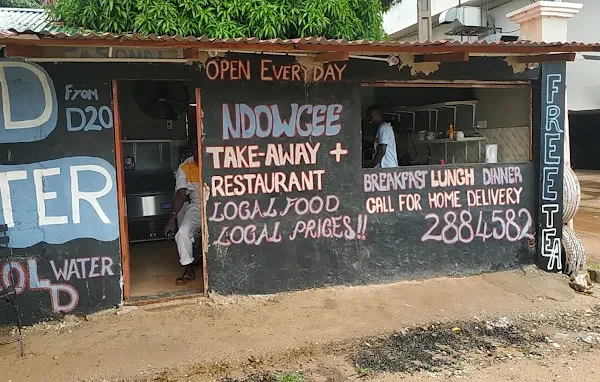 OPEN EVERYDAY
D
FYOM
D20
TER
COLD WATER
NDOWGEE
TAKE-AWAY +
RESTAURANT
LOCAL FOOD
LOCAL PRICES!!
BREAKFAST LUNCH DINNER
CALL FOR HOME DELIVERY
2884582
FREE TEA